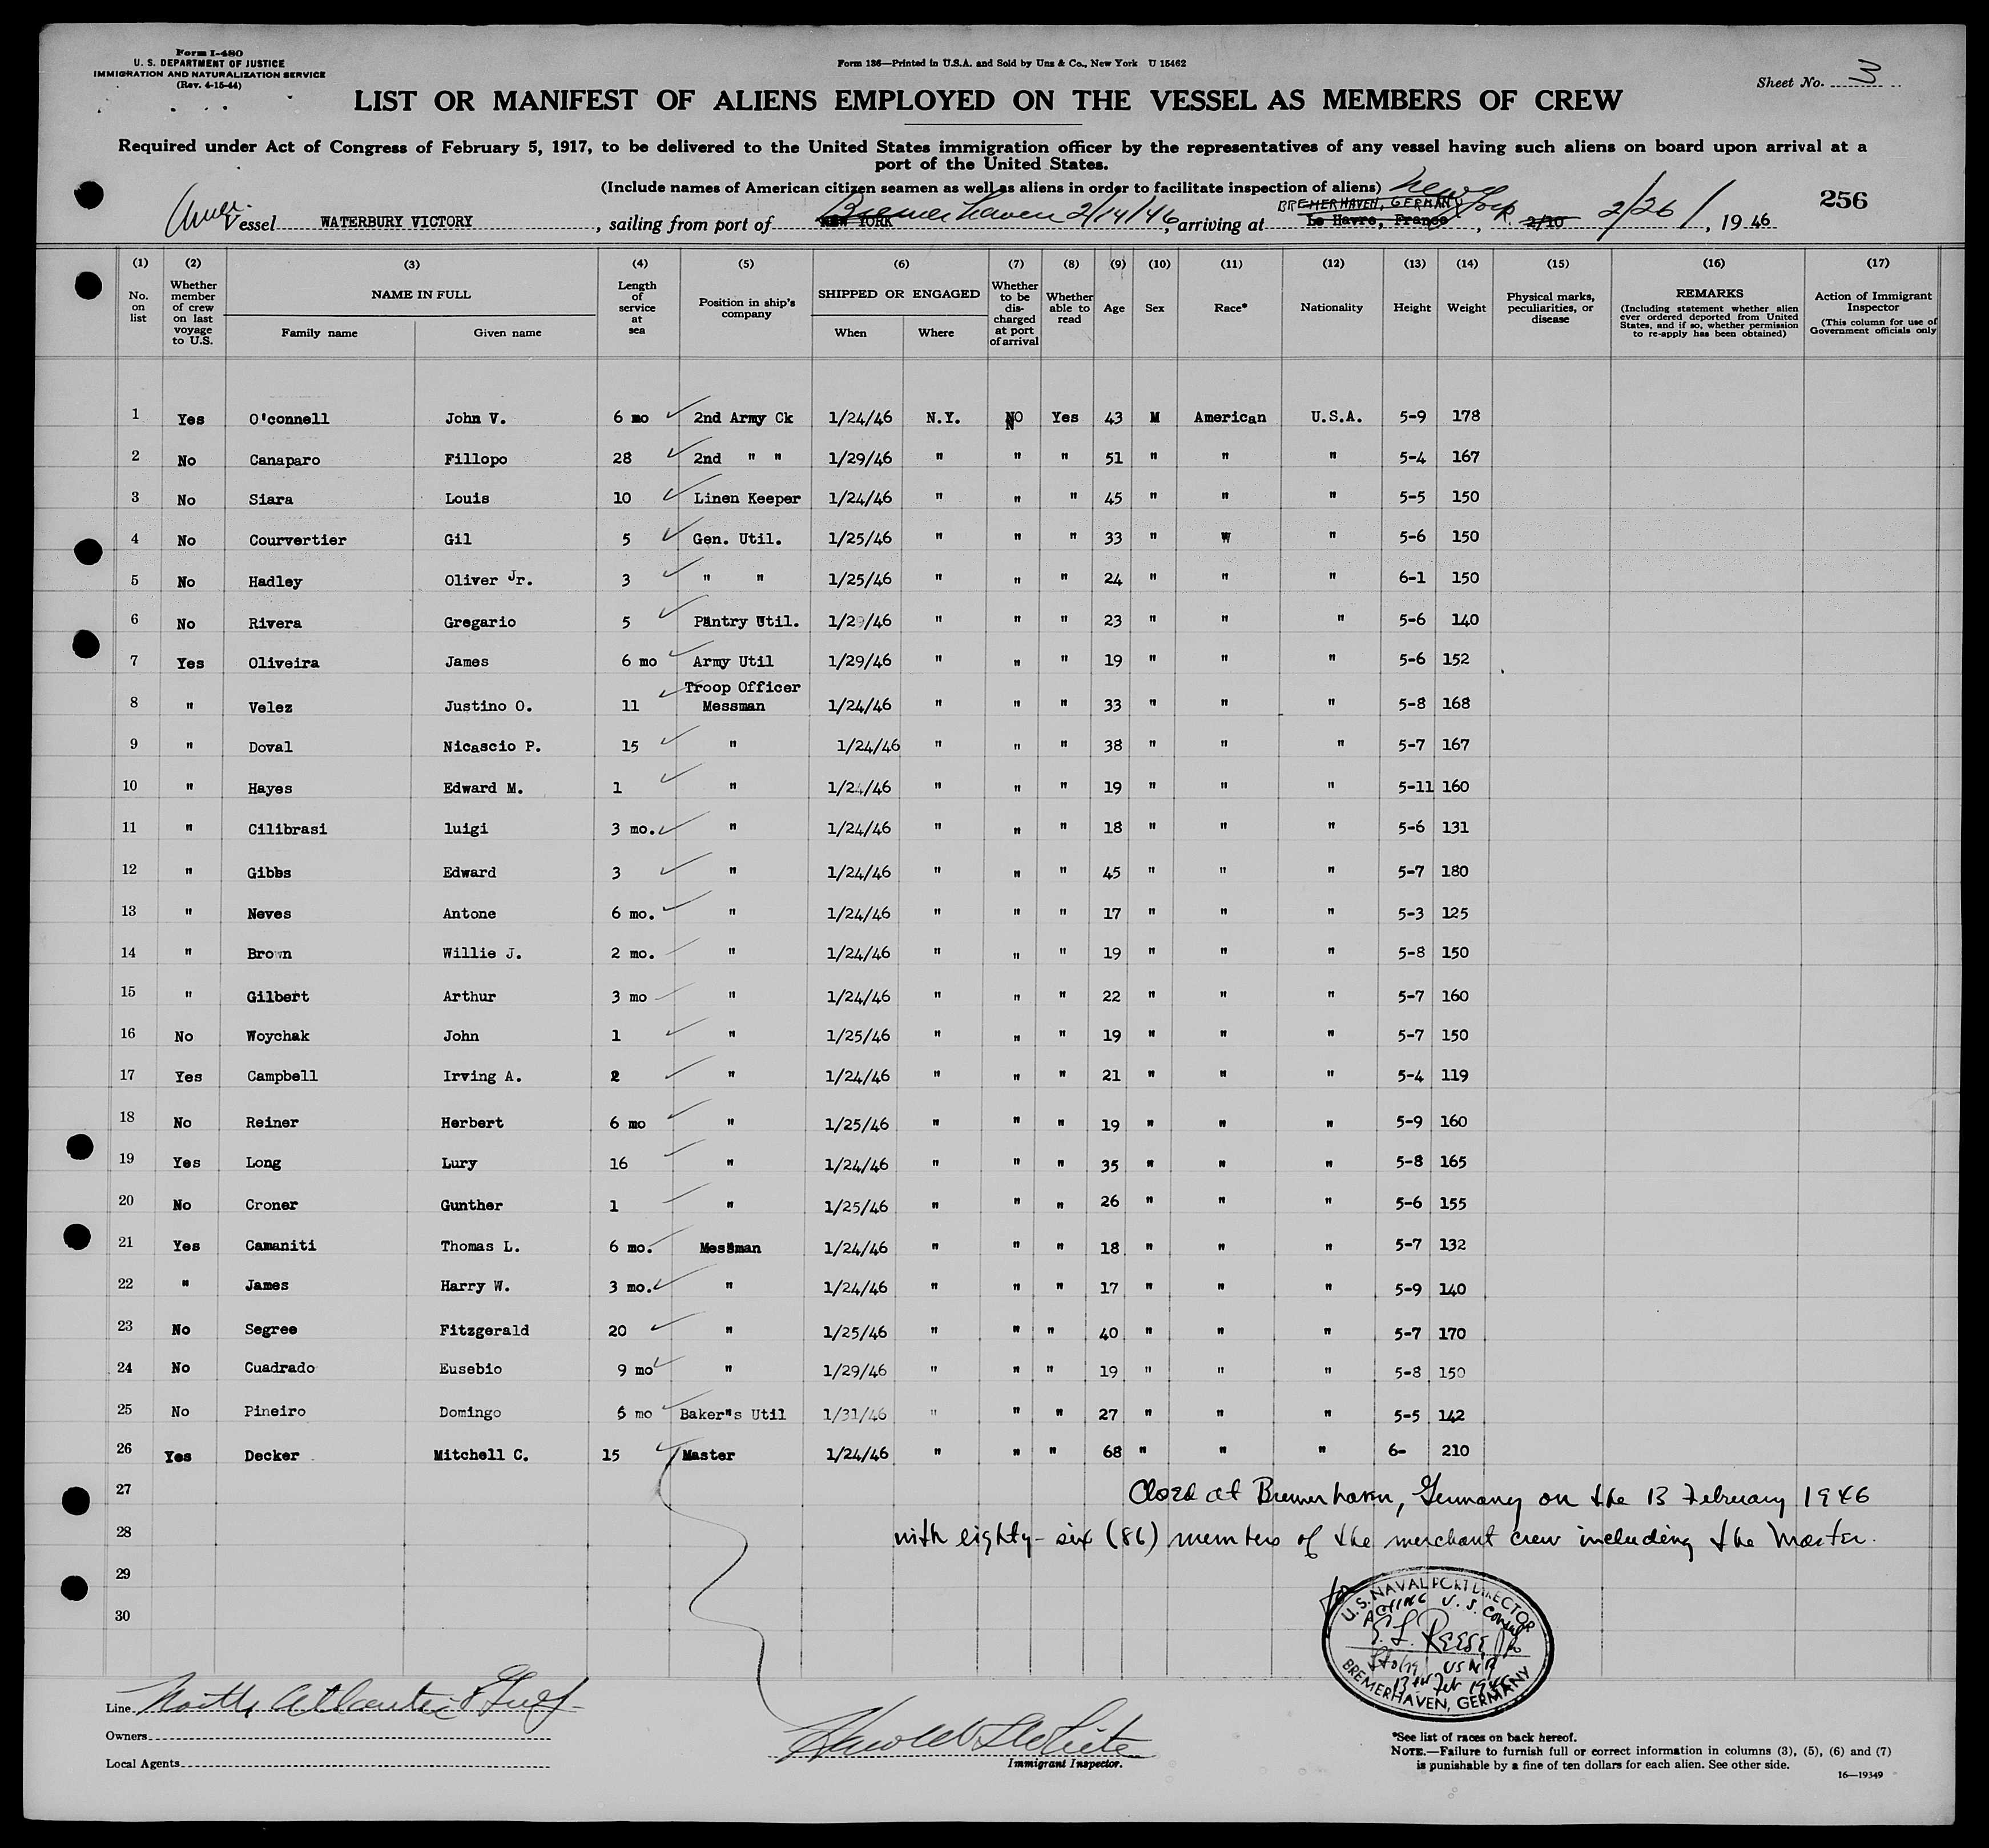 Form I-480
U. S. DEPARTMENT OF JUSTICE
IMMIGRATION AND NATURALIZATION SERVICE
(Rev. 4-15-44)
Form 136—Printed in U.S.A. and Sold by Unz & Co., New York U 15462
Sheet No. 3
LIST OR MANIFEST OF ALIENS EMPLOYED ON THE VESSEL AS MEMBERS OF CREW
Required under Act of Congress of February 5, 1917, to be delivered to the United States immigration officer by the representatives of any vessel having such aliens on board upon arrival at a
port of the United States.
(Include names of American citizen seamen as well as aliens in order to facilitate inspection of aliens)
256
Amer. Vessel WATERBURY VICTORY, sailing from port of NEW YORK Bremerhaven 2/14/46, arriving at BREMERHAVEN, GERMANY Le Havre, France New York, 2/10 2/26/, 1946
(1) (2) (3) (4) (5) (6) (7) (8) (9) (10) (11) (12) (13) (14) (15) (16) (17)
No. on list
Whether member of crew on last voyage to U.S.
NAME IN FULL
Family name Given name
Length of service at sea
Position in ship's company
SHIPPED OR ENGAGED
When Where
Whether to be discharged at port of arrival
Whether able to read
Age Sex Race* Nationality Height Weight
Physical marks, peculiarities, or disease
REMARKS
(Including statement whether alien ever ordered deported from United States, and if so, whether permission to re-apply has been obtained)
Action of Immigrant Inspector
(This column for use of Government officials only)
1 Yes O'connell John V. 6 mo 2nd Army Ck 1/24/46 N.Y. NO Yes 43 M American U.S.A. 5-9 178
2 No Canaparo Fillopo 28 2nd " " 1/29/46 " " " 51 " " " 5-4 167
3 No Siara Louis 10 Linen Keeper 1/24/46 " " " 45 " " " 5-5 150
4 No Courvertier Gil 5 Gen. Util. 1/25/46 " " " 33 " " " 5-6 150
5 No Hadley Oliver Jr. 3 " " 1/25/46 " " " 24 " " " 6-1 150
6 No Rivera Gregario 5 Pantry Util. 1/29/46 " " " 23 " " " 5-6 140
7 Yes Oliveira James 6 mo Army Util 1/29/46 " " " 19 " " " 5-6 152
8 " Velez Justino O. 11 Troop Officer Messman 1/24/46 " " " 33 " " " 5-8 168
9 " Doval Nicascio P. 15 " 1/24/46 " " " 38 " " " 5-7 167
10 " Hayes Edward M. 1 " 1/24/46 " " " 19 " " " 5-11 160
11 " Cilibrasi luigi 3 mo. " 1/24/46 " " " 18 " " " 5-6 131
12 " Gibbs Edward 3 " 1/24/46 " " " 45 " " " 5-7 180
13 " Neves Antone 6 mo. " 1/24/46 " " " 17 " " " 5-3 125
14 " Brown Willie J. 2 mo. " 1/24/46 " " " 19 " " " 5-8 150
15 " Gilbert Arthur 3 mo " 1/24/46 " " " 22 " " " 5-7 160
16 No Woychak John 1 " 1/25/46 " " " 19 " " " 5-7 150
17 Yes Campbell Irving A. 2 " 1/24/46 " " " 21 " " " 5-4 119
18 No Reiner Herbert 6 mo " 1/25/46 " " " 19 " " " 5-9 160
19 Yes Long Lury 16 " 1/24/46 " " " 35 " " " 5-8 165
20 No Croner Gunther 1 " 1/25/46 " " " 26 " " " 5-6 155
21 Yes Camaniti Thomas L. 6 mo. Messman 1/24/46 " " " 18 " " " 5-7 132
22 " James Harry W. 3 mo. " 1/24/46 " " " 17 " " " 5-9 140
23 No Segree Fitzgerald 20 " 1/25/46 " " " 40 " " " 5-7 170
24 No Cuadrado Eusebio 9 mo " 1/29/46 " " " 19 " " " 5-8 150
25 No Pineiro Domingo 6 mo Baker"s Util 1/31/46 " " " 27 " " " 5-5 142
26 Yes Decker Mitchell C. 15 Master 1/24/46 " " " 68 " " " 6- 210
27 Closed at Bremerhaven, Germany on the 13 February 1946
28 with eighty-six (86) members of the merchant crew including the Master.
29
30
U.S. NAVAL PORT DIRECTOR
ACTING U. S. Consul
REESE
USNR
13 Feb 1946
BREMERHAVEN, GERMANY
Line North Atlantic & Gulf
Owners
Local Agents
Immigrant Inspector.
*See list of races on back hereof.
NOTE.—Failure to furnish full or correct information in columns (3), (5), (6) and (7)
is punishable by a fine of ten dollars for each alien. See other side.
16—19349